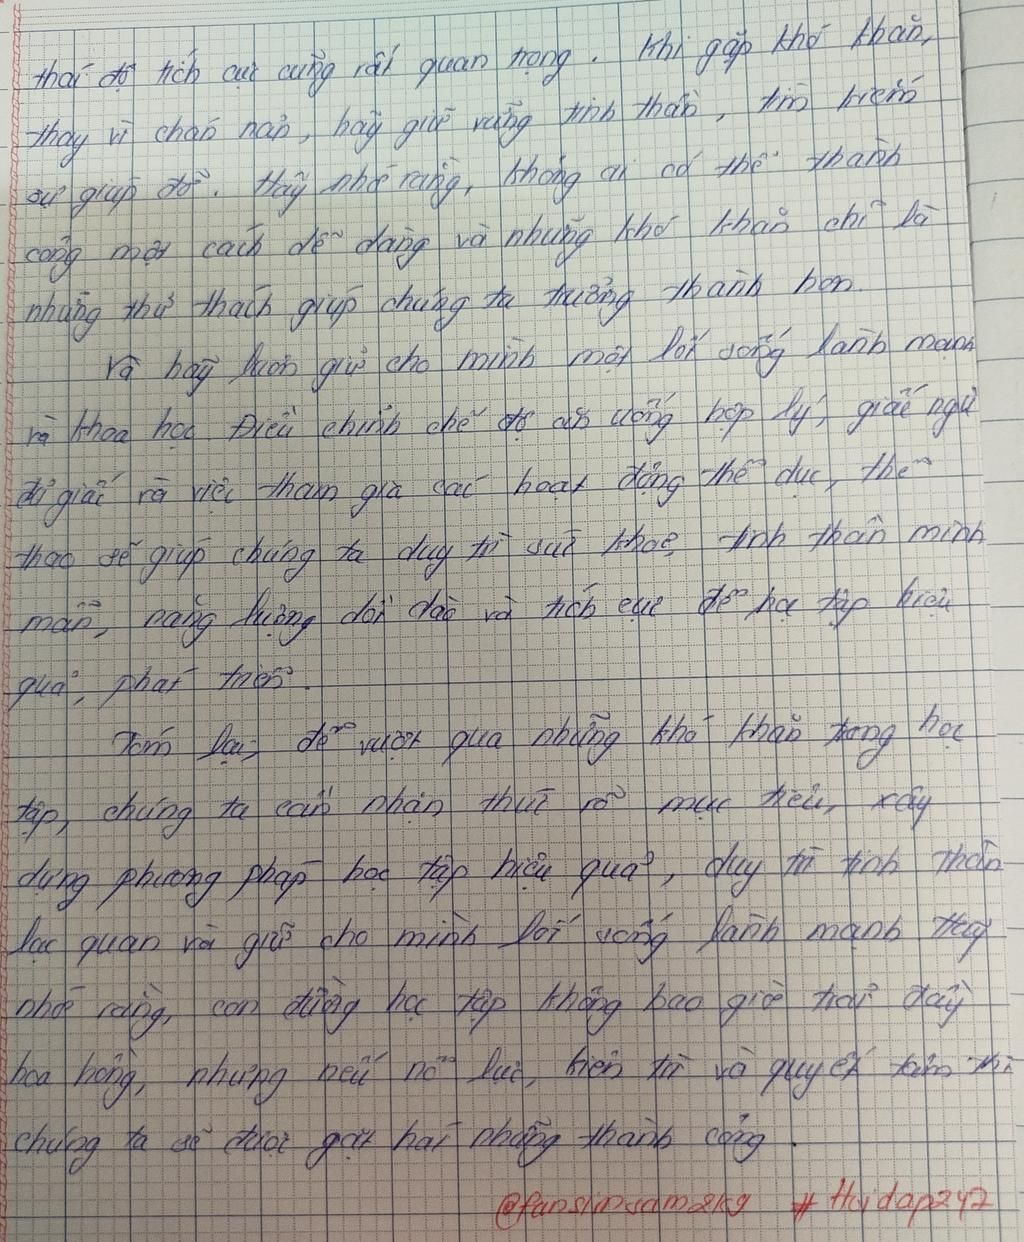 thái độ tích cực cũng rất quan trọng. Khi gặp khó khăn,
thay vì chán nản, hãy giữ vững tinh thần, tìm kiếm
sự giúp đỡ. Hãy nhớ rằng, không ai có thể thành
công một cách dễ dàng và những khó khăn chỉ là
những thử thách giúp chúng ta trưởng thành hơn.
Và hãy luôn giữ cho mình một lối sống lành mạnh
và khoa học. Điều chỉnh chế độ ăn uống hợp lý, giấc ngủ
đủ giấc và việc tham gia các hoạt động thể dục, thể
thao sẽ giúp chúng ta duy trì sức khỏe, tinh thần minh
mẫn, năng lượng dồi dào và tích cực để học tập hiệu
quả, phát triển.
Tóm lại, để vượt qua những khó khăn trong học
tập, chúng ta cần nhận thức rõ mục tiêu, xây
dựng phương pháp học tập hiệu quả, duy trì tinh thần
lạc quan và giữ cho mình lối sống lành mạnh. Hãy
nhớ rằng, con đường học tập không bao giờ trải đầy
hoa hồng, nhưng nếu nỗ lực, kiên trì và quyết tâm thì
chúng ta sẽ được gặt hái những thành công.
@fansimsam2kg #Hoidap247